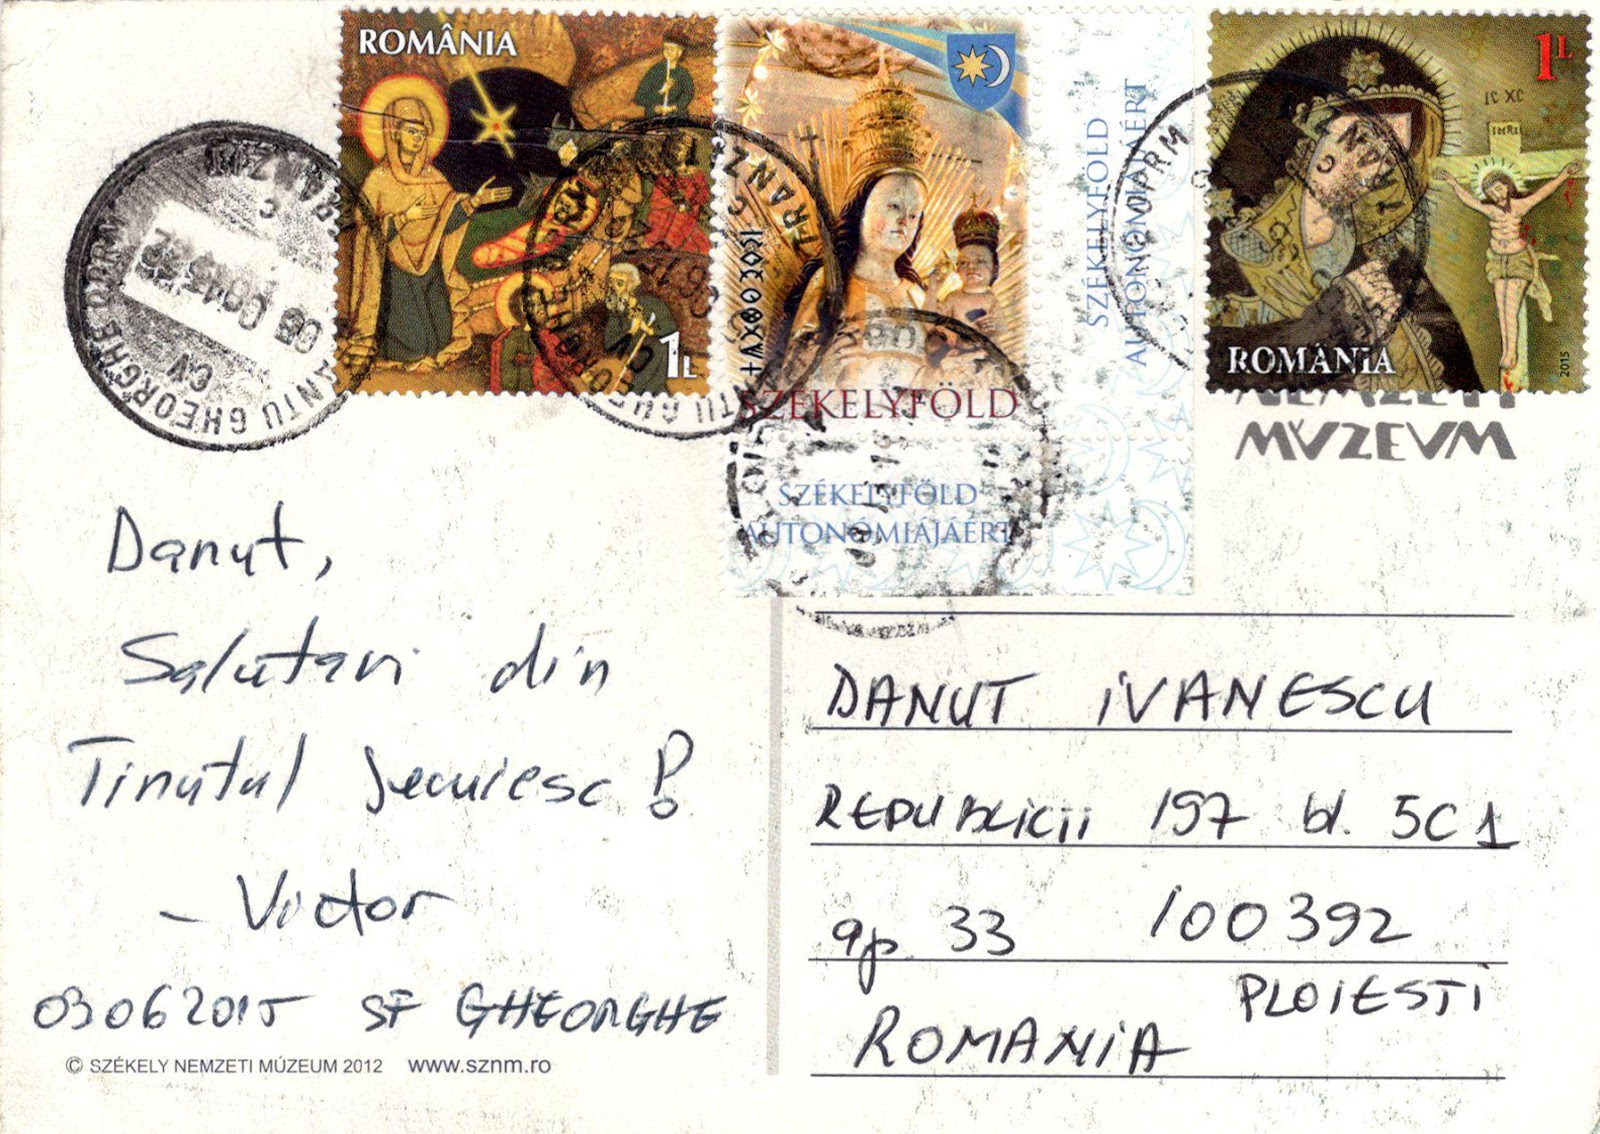 ROMÂNIA
1L
2014
SZÉKELYFÖLD
SZÉKELYFÖLD
AUTONÓMIÁJÁÉRT
SZÉKELYFÖLD
AUTONÓMIÁJÁÉRT
1L
IC XC
ROMÂNIA
2015
NEMZETI
MÚZEUM
GHEORGHE OPRM
CV
Danut,
Salutari din
Tinutul Secuiesc!
- Victor
03 06 2015 SF GHEORGHE
© SZÉKELY NEMZETI MÚZEUM 2012 www.sznm.ro
DANUT IVANESCU
REPUBLICII 197 bl. 5C1
ap. 33 100392
PLOIESTI
ROMANIA